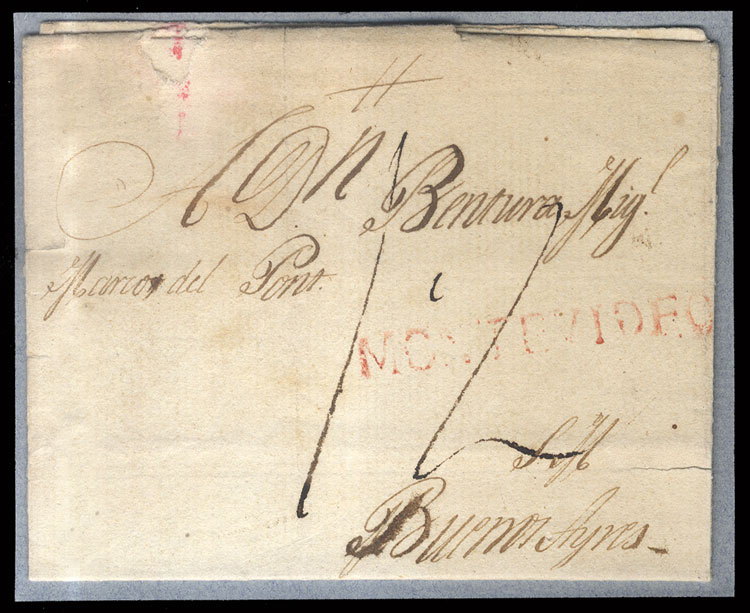 A Dn Bentura Migl.
Marcos del Pont.
MONTEVIDEO
Buenos Ayres